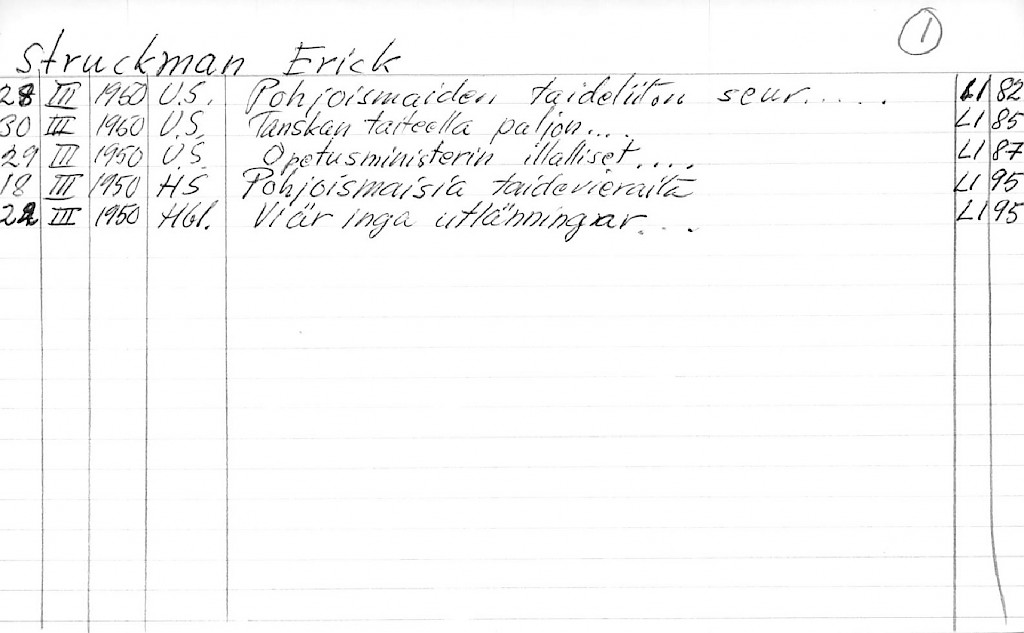 1
Struckman Erick
28 III 1950 U.S. Pohjoismaiden taideliiton seur..... LI 82
30 III 1950 U.S. Tanskan taiteella paljon.... LI 85
29 III 1950 U.S. Opetusministerin illalliset.... LI 87
18 III 1950 HS Pohjoismaisia taidevieraita LI 95
22 III 1950 Hbl. Vi är inga utlänningar... LI 95